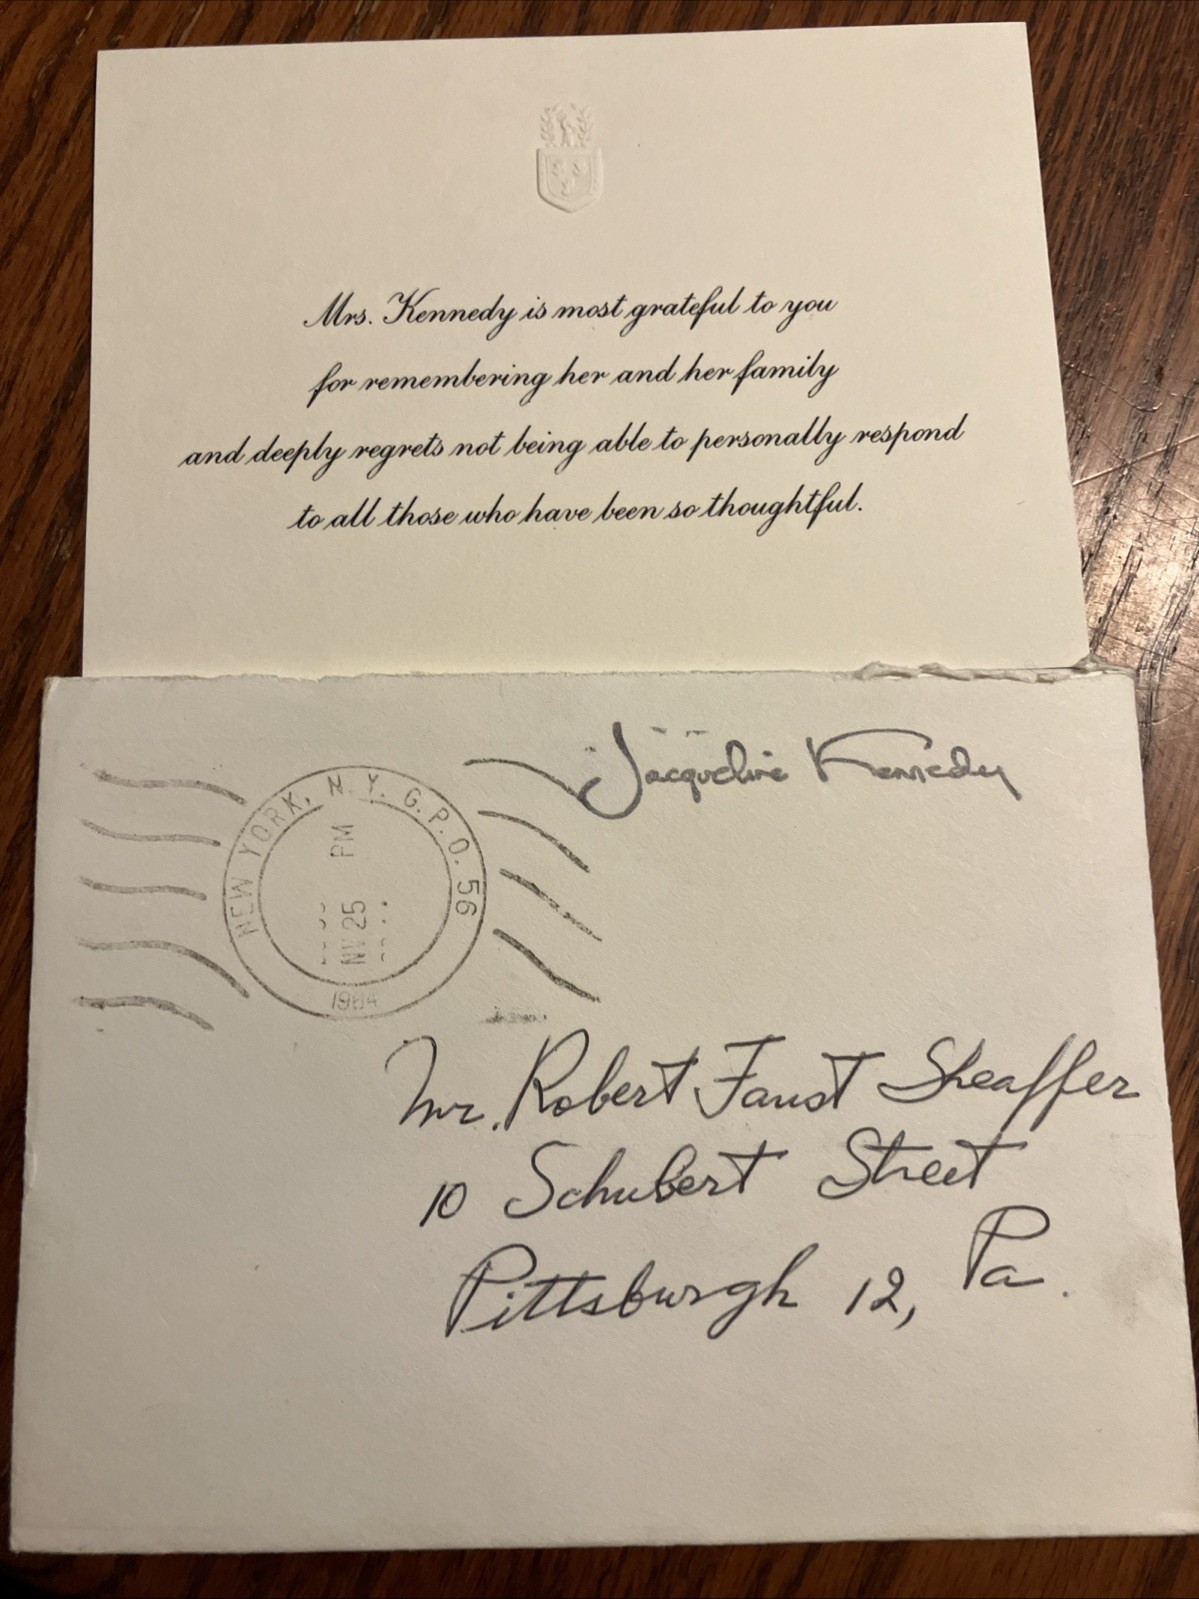 Mrs. Kennedy is most grateful to you
for remembering her and her family
and deeply regrets not being able to personally respond
to all those who have been so thoughtful.
Jacqueline Kennedy
NEW YORK, N.Y. G.P.O. 56
PM
25
1964
Mr. Robert Faust Sheaffer
10 Schubert Street
Pittsburgh 12, Pa.